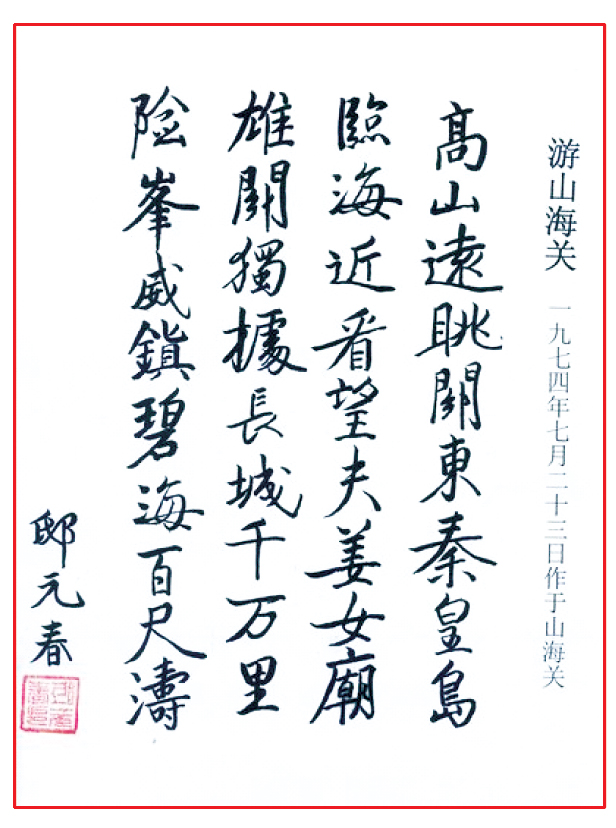 游山海关 一九七四年七月二十三日作于山海关
高山遠眺関東秦皇島
臨海近看望夫姜女廟
雄関獨據長城千万里
险峯威鎮碧海百尺濤
邸元春